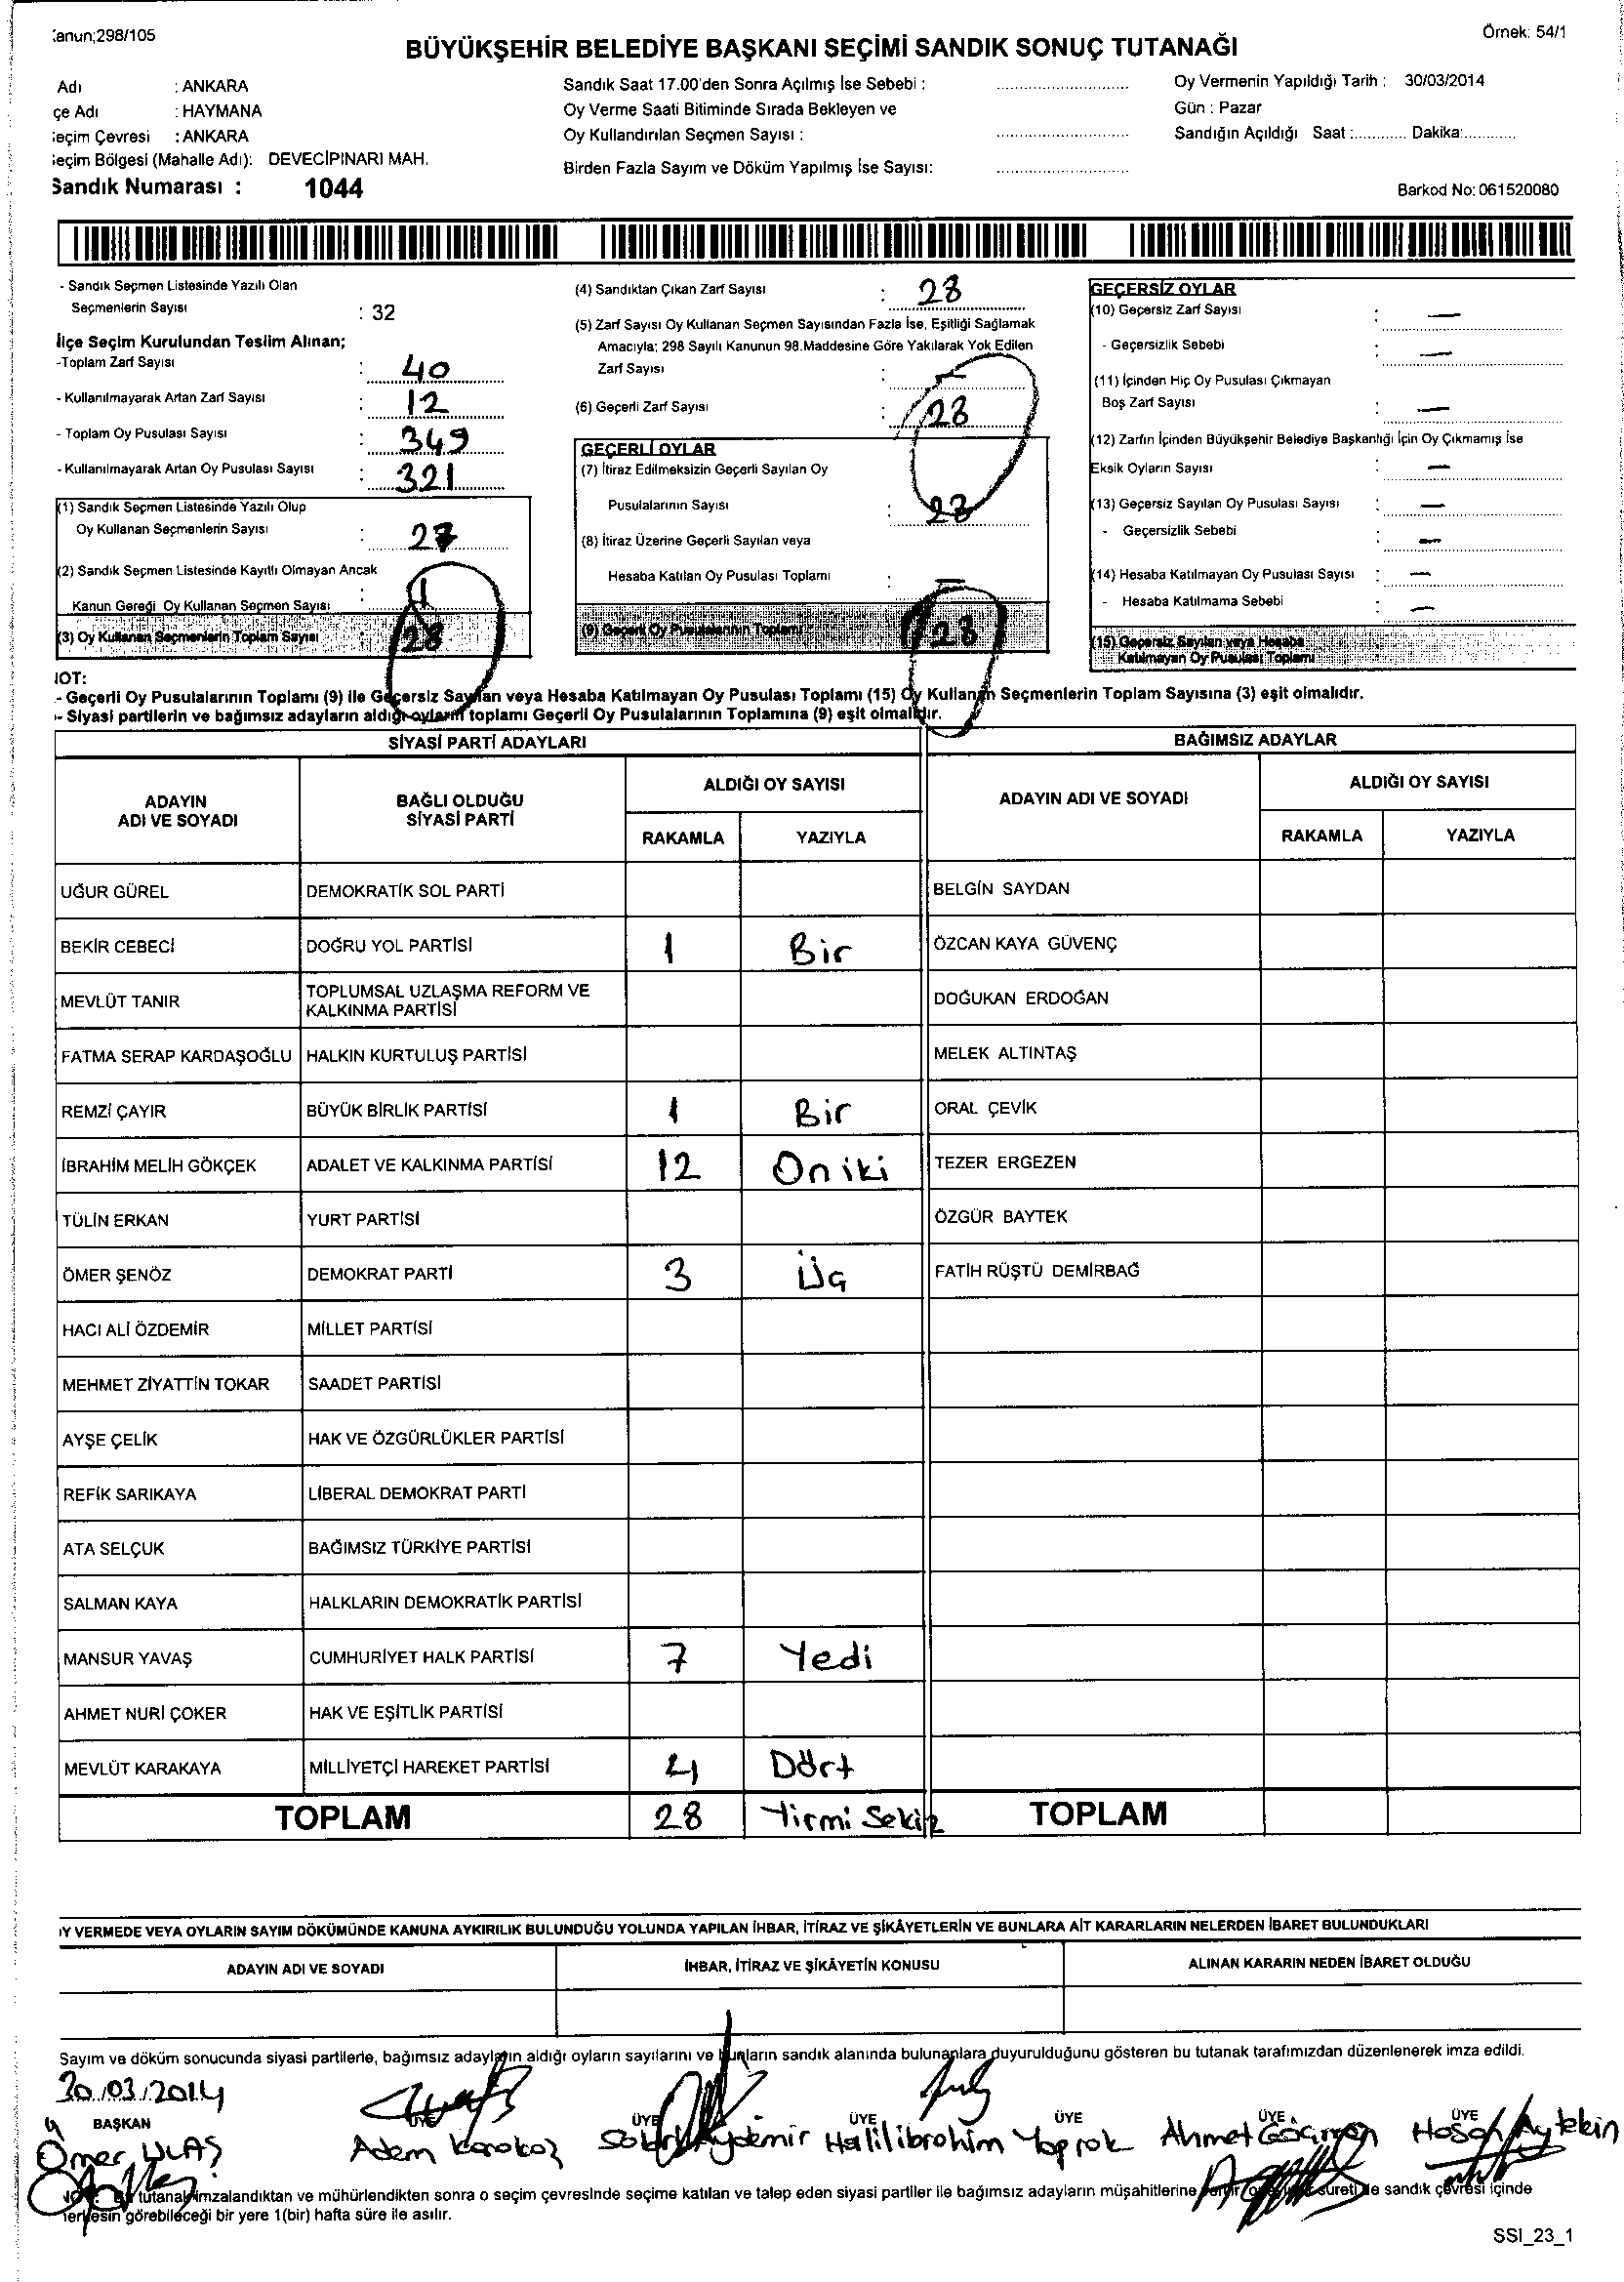 :anun;298/105
Örnek: 54/1
BÜYÜKŞEHİR BELEDİYE BAŞKANI SEÇİMİ SANDIK SONUÇ TUTANAĞI
Adı : ANKARA
çe Adı : HAYMANA
eçim Çevresi : ANKARA
eçim Bölgesi (Mahalle Adı): DEVECİPINARI MAH.
Sandık Numarası : 1044
Sandık Saat 17.00'den Sonra Açılmış İse Sebebi :
Oy Verme Saati Bitiminde Sırada Bekleyen ve
Oy Kullandırılan Seçmen Sayısı :
Birden Fazla Sayım ve Döküm Yapılmış İse Sayısı:
Oy Vermenin Yapıldığı Tarih : 30/03/2014
Gün : Pazar
Sandığın Açıldığı Saat :............ Dakika:............
Barkod No: 061520080
- Sandık Seçmen Listesinde Yazılı Olan
Seçmenlerin Sayısı : 32
İlçe Seçim Kurulundan Teslim Alınan;
-Toplam Zarf Sayısı : 40
- Kullanılmayarak Artan Zarf Sayısı : 12
- Toplam Oy Pusulası Sayısı : 349
- Kullanılmayarak Artan Oy Pusulası Sayısı : 321
(1) Sandık Seçmen Listesinde Yazılı Olup
Oy Kullanan Seçmenlerin Sayısı : 27
(2) Sandık Seçmen Listesinde Kayıtlı Olmayan Ancak
Kanun Gereği Oy Kullanan Seçmen Sayısı : 1
(3) Oy Kullanan Seçmenlerin Toplam Sayısı : 28
(4) Sandıktan Çıkan Zarf Sayısı : 28
(5) Zarf Sayısı Oy Kullanan Seçmen Sayısından Fazla İse, Eşitliği Sağlamak
Amacıyla; 298 Sayılı Kanunun 98.Maddesine Göre Yakılarak Yok Edilen
Zarf Sayısı : —
(6) Geçerli Zarf Sayısı : 28
GEÇERLİ OYLAR
(7) İtiraz Edilmeksizin Geçerli Sayılan Oy
Pusulalarının Sayısı : 28
(8) İtiraz Üzerine Geçerli Sayılan veya
Hesaba Katılan Oy Pusulası Toplamı : —
(9) Geçerli Oy Pusulalarının Toplamı 28
GEÇERSİZ OYLAR
(10) Geçersiz Zarf Sayısı : —
- Geçersizlik Sebebi : —
(11) İçinden Hiç Oy Pusulası Çıkmayan
Boş Zarf Sayısı : —
(12) Zarfın İçinden Büyükşehir Belediye Başkanlığı İçin Oy Çıkmamış İse
Eksik Oyların Sayısı : —
(13) Geçersiz Sayılan Oy Pusulası Sayısı : —
- Geçersizlik Sebebi : —
(14) Hesaba Katılmayan Oy Pusulası Sayısı : —
- Hesaba Katılmama Sebebi : —
(15) Geçersiz Sayılan veya Hesaba
Katılmayan Oy Pusulası Toplamı
IOT:
- Geçerli Oy Pusulalarının Toplamı (9) ile Geçersiz Sayılan veya Hesaba Katılmayan Oy Pusulası Toplamı (15) Oy Kullanan Seçmenlerin Toplam Sayısına (3) eşit olmalıdır.
- Siyasi partilerin ve bağımsız adayların aldığı oyların toplamı Geçerli Oy Pusulalarının Toplamına (9) eşit olmalıdır.
SİYASİ PARTİ ADAYLARI BAĞIMSIZ ADAYLAR
ADAYIN ADI VE SOYADI
BAĞLI OLDUĞU SİYASİ PARTİ
ALDIĞI OY SAYISI
RAKAMLA YAZIYLA
ADAYIN ADI VE SOYADI
ALDIĞI OY SAYISI
RAKAMLA YAZIYLA
UĞUR GÜREL DEMOKRATİK SOL PARTİ BELGİN SAYDAN
BEKİR CEBECİ DOĞRU YOL PARTİSİ 1 Bir ÖZCAN KAYA GÜVENÇ
MEVLÜT TANIR TOPLUMSAL UZLAŞMA REFORM VE KALKINMA PARTİSİ DOĞUKAN ERDOĞAN
FATMA SERAP KARDAŞOĞLU HALKIN KURTULUŞ PARTİSİ MELEK ALTINTAŞ
REMZİ ÇAYIR BÜYÜK BİRLİK PARTİSİ 1 Bir ORAL ÇEVİK
İBRAHİM MELİH GÖKÇEK ADALET VE KALKINMA PARTİSİ 12 Oniki TEZER ERGEZEN
TÜLİN ERKAN YURT PARTİSİ ÖZGÜR BAYTEK
ÖMER ŞENÖZ DEMOKRAT PARTİ 3 Üç FATİH RÜŞTÜ DEMİRBAĞ
HACI ALİ ÖZDEMİR MİLLET PARTİSİ
MEHMET ZİYATTİN TOKAR SAADET PARTİSİ
AYŞE ÇELİK HAK VE ÖZGÜRLÜKLER PARTİSİ
REFİK SARIKAYA LİBERAL DEMOKRAT PARTİ
ATA SELÇUK BAĞIMSIZ TÜRKİYE PARTİSİ
SALMAN KAYA HALKLARIN DEMOKRATİK PARTİSİ
MANSUR YAVAŞ CUMHURİYET HALK PARTİSİ 7 Yedi
AHMET NURİ ÇOKER HAK VE EŞİTLİK PARTİSİ
MEVLÜT KARAKAYA MİLLİYETÇİ HAREKET PARTİSİ 4 Dört
TOPLAM 28 Yirmi Sekiz TOPLAM
IY VERMEDE VEYA OYLARIN SAYIM DÖKÜMÜNDE KANUNA AYKIRILIK BULUNDUĞU YOLUNDA YAPILAN İHBAR, İTİRAZ VE ŞİKÂYETLERİN VE BUNLARA AİT KARARLARIN NELERDEN İBARET BULUNDUKLARI
ADAYIN ADI VE SOYADI İHBAR, İTİRAZ VE ŞİKÂYETİN KONUSU ALINAN KARARIN NEDEN İBARET OLDUĞU
Sayım ve döküm sonucunda siyasi partilerle, bağımsız adayların aldığı oyların sayılarını ve bunların sandık alanında bulunanlara duyurulduğunu gösteren bu tutanak tarafımızdan düzenlenerek imza edildi.
30.03.2014
BAŞKAN ÜYE ÜYE ÜYE ÜYE ÜYE ÜYE
Ömer ULAŞ Adem Karakoz Aydemir Halilibrahim Yaprak Ahmet Göçmen Hasan Aytekin
tutanak imzalandıktan ve mühürlendikten sonra o seçim çevresinde seçime katılan ve talep eden siyasi partiler ile bağımsız adayların müşahitlerine sureti de sandık çevresi içinde
herkesin görebileceği bir yere 1(bir) hafta süre ile asılır.
SSI_23_1